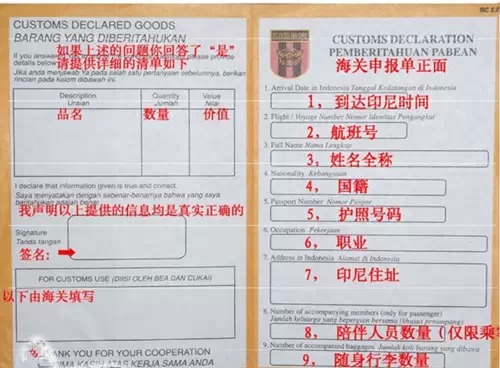 BC 2.2
CUSTOMS DECLARED GOODS
BARANG YANG DIBERITAHUKAN
If you answered please provide
details below
如果上述的问题你回答了“是”
请提供详细的清单如下
Jika anda menjawab Ya pada salah satu pertanyaan sebelumnya, berikan
rincian pada kolom dibawah ini.
Description Quantity Value
Uraian Jumlah Nilai
品名 数量 价值
I declare that information given is true and correct.
Saya menyatakan dengan sebenar-benarnya bahwa yang saya
beritahukan adalah benar.
我声明以上提供的信息均是真实正确的
Signature
Tanda tangan
签名:
FOR CUSTOMS USE (DIISI OLEH BEA DAN CUKAI)
以下由海关填写
THANK YOU FOR YOUR COOPERATION
TERIMA KASIH ATAS KERJA SAMA ANDA
CUSTOMS DECLARATION
PEMBERITAHUAN PABEAN
海关申报单正面
1. Arrival Date in Indonesia Tanggal Kedatangan di Indonesia
1，到达印尼时间
2. Flight / Voyage Number Nomor Identitas Pengangkut
2，航班号
3. Full Name Nama Lengkap
3，姓名全称
4. Nationality Kebangsaan
4，国籍
5. Passport Number Nomor Paspor
5，护照号码
6. Occupation Pekerjaan
6，职业
7. Address in Indonesia Alamat di Indonesia
7，印尼住址
8. Number of accompanying members (only for passenger)
Jumlah keluarga yang bepergian bersama (khusus penumpang)
8，陪伴人员数量（仅限乘
9. Number of accompanied baggages Jumlah koli barang yang dibawa
9，随身行李数量